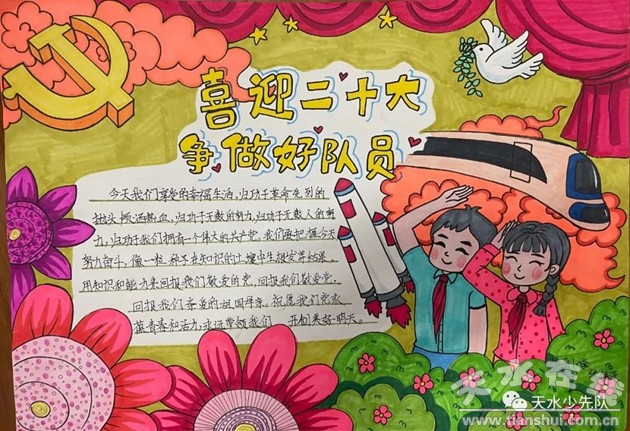 喜迎二十大
争做好队员
今天我们享受的幸福生活,归功于革命先烈的
抛头颅洒热血,归功于无数人的努力,归功于无数人的努
力,归功于我们拥有一个伟大的共产党。我们要把握今天
努力奋斗,像一粒种子在知识的土壤中生根发芽结果。
用知识和能力来回报我们敬爱的党,回报我们敬爱党,
回报我们亲爱的祖国母亲。祝愿我们党永
葆青春和活力,永远带领我们 开创美好明天。
天水在线
天水少先队
www.tianshui.com.cn